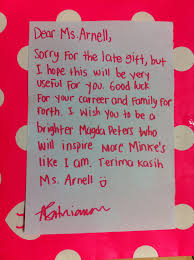 Dear Ms. Arnell,
Sorry for the late gift, but
I hope this will be very
useful for you. Good luck
for your carreer and family for
forth. I wish you to be a
brighter Magda Peters who
will inspire more Minke's
like I am. Terima kasih
Ms. Arnell